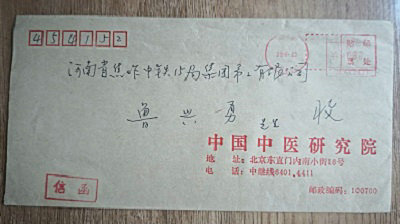 454152
贴邮票处
河南省焦作中铁15局集团第二有限公司
鲁兴勇 先生 收
中国中医研究院
地 址：北京东直门内南小街16号
电 话：中继线6401.4411
信函
邮政编码：100700